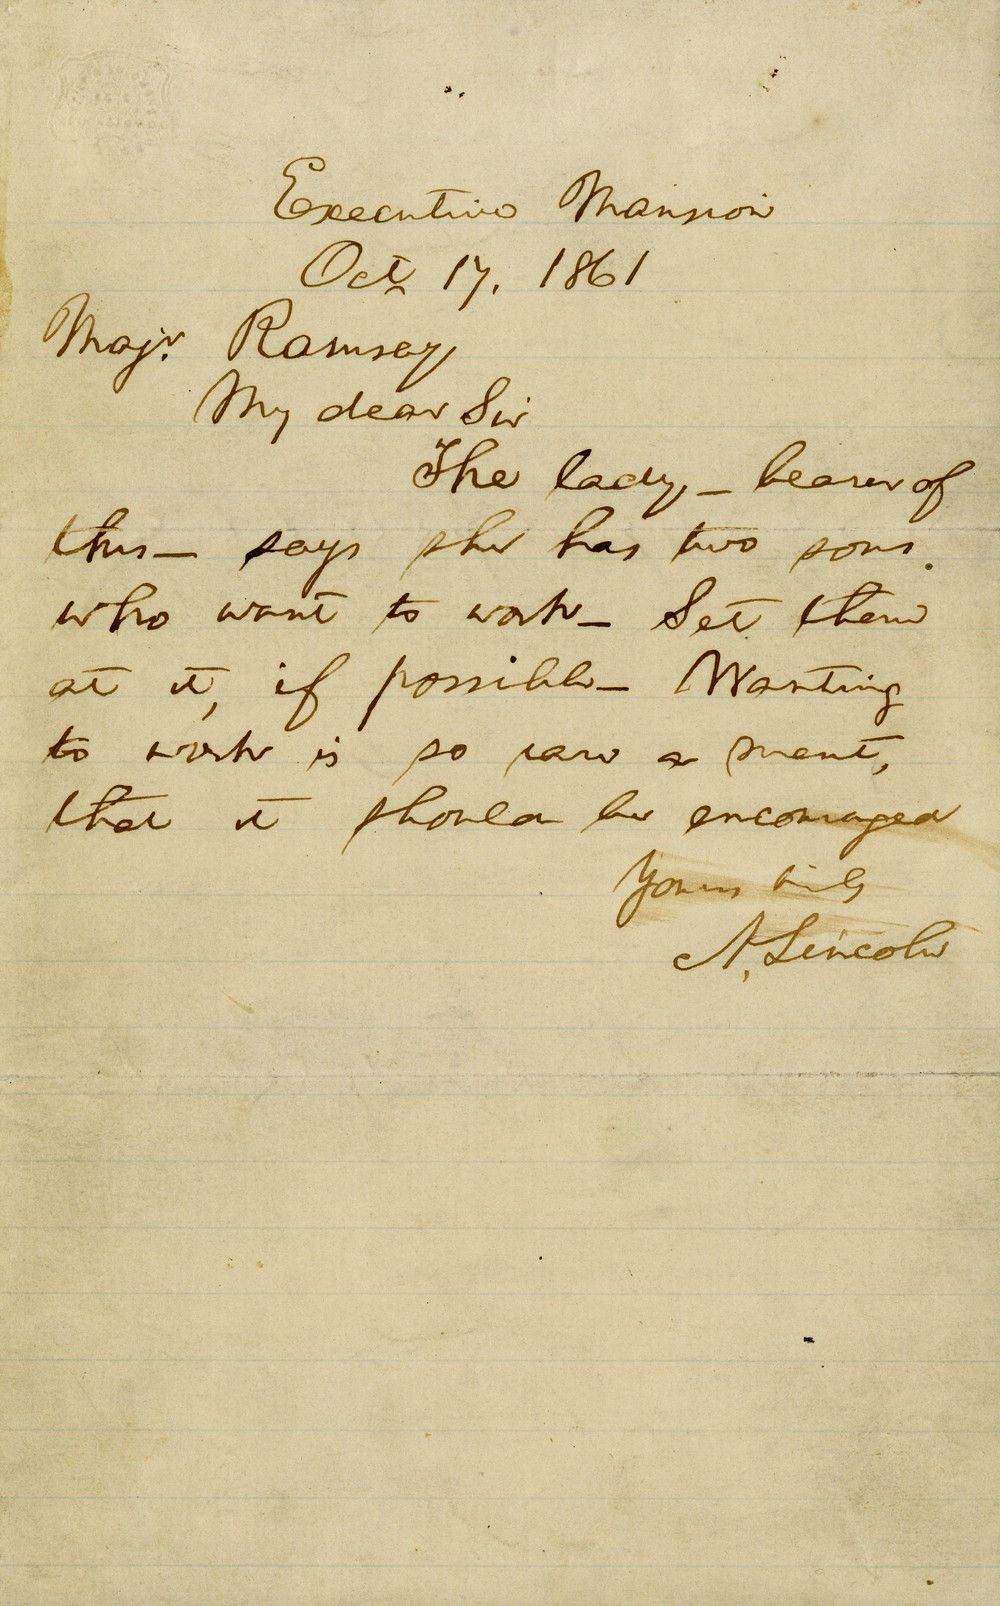 Executive Mansion
Oct. 17, 1861
Majr. Ramsay
My dear Sir
The lady, – bearer of
this – says she has two sons
who want to work – Set them
at it, if possible – Wanting
to work is so rare a merit,
that it should be encouraged
Yours truly
A. Lincoln